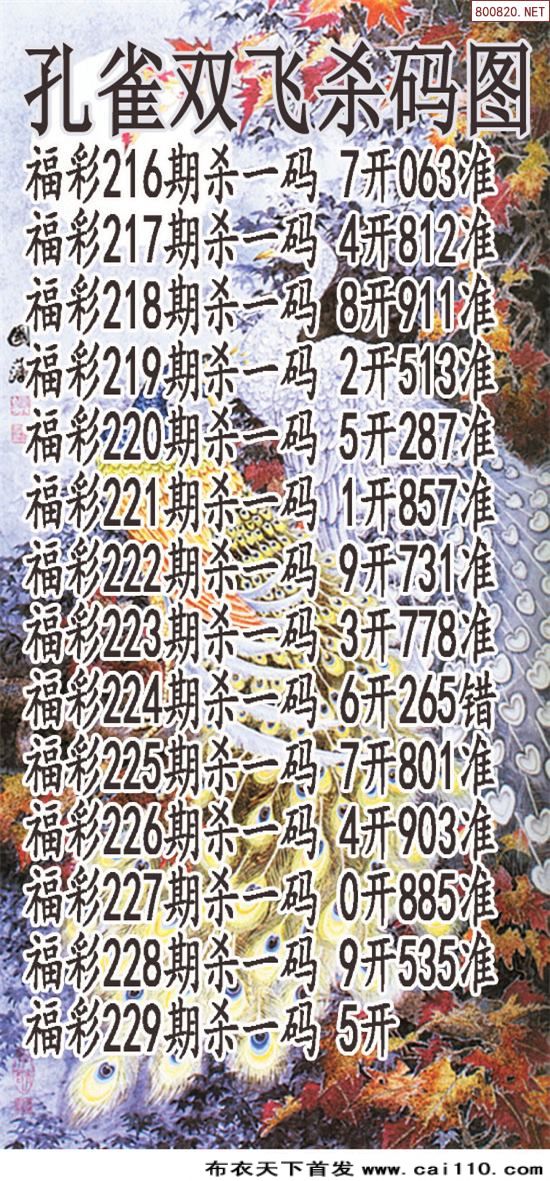 800820.NET
孔雀双飞杀码图
福彩216期杀一码 7开063准
福彩217期杀一码 4开812准
福彩218期杀一码 8开911准
福彩219期杀一码 2开513准
福彩220期杀一码 5开287准
福彩221期杀一码 1开857准
福彩222期杀一码 9开731准
福彩223期杀一码 3开778准
福彩224期杀一码 6开265错
福彩225期杀一码 7开801准
福彩226期杀一码 4开903准
福彩227期杀一码 0开885准
福彩228期杀一码 9开535准
福彩229期杀一码 5开
布衣天下首发 www.cai110.com